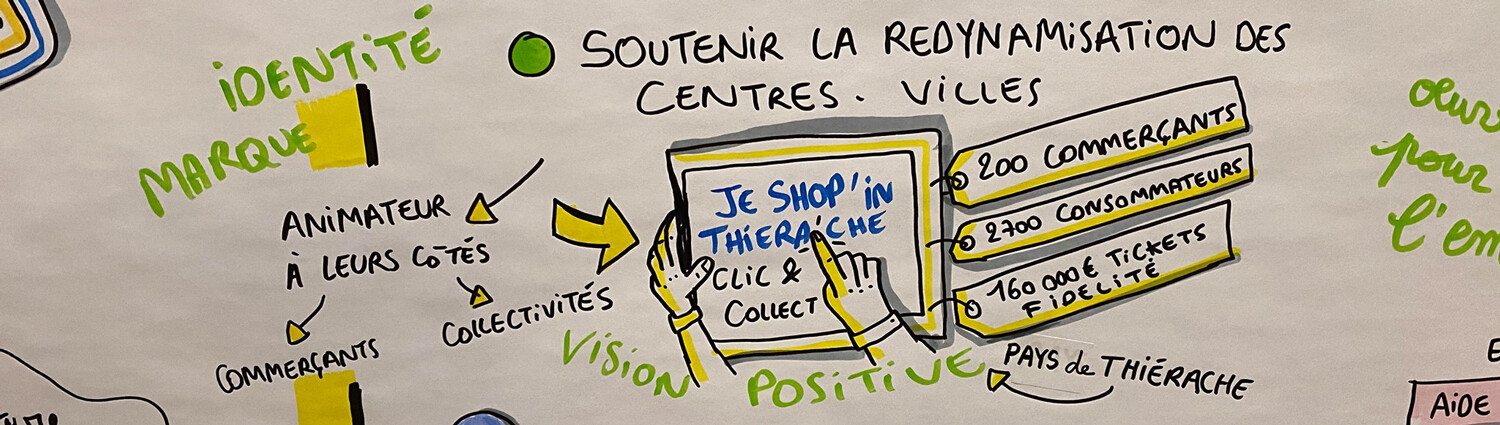 IDENTITÉ
MARQUE
SOUTENIR LA REDYNAMISATION DES
CENTRES. VILLES
ANIMATEUR
À LEURS CÔTÉS
COLLECTIVITÉS
COMMERÇANTS
JE SHOP'IN
THIERA'CHE
CLIC &
COLLECT
200 COMMERÇANTS
2700 CONSOMMATEURS
160 000 € TICKETS
FIDELITÉ
VISION POSITIVE
PAYS de THIÉRACHE
pour
AIDE